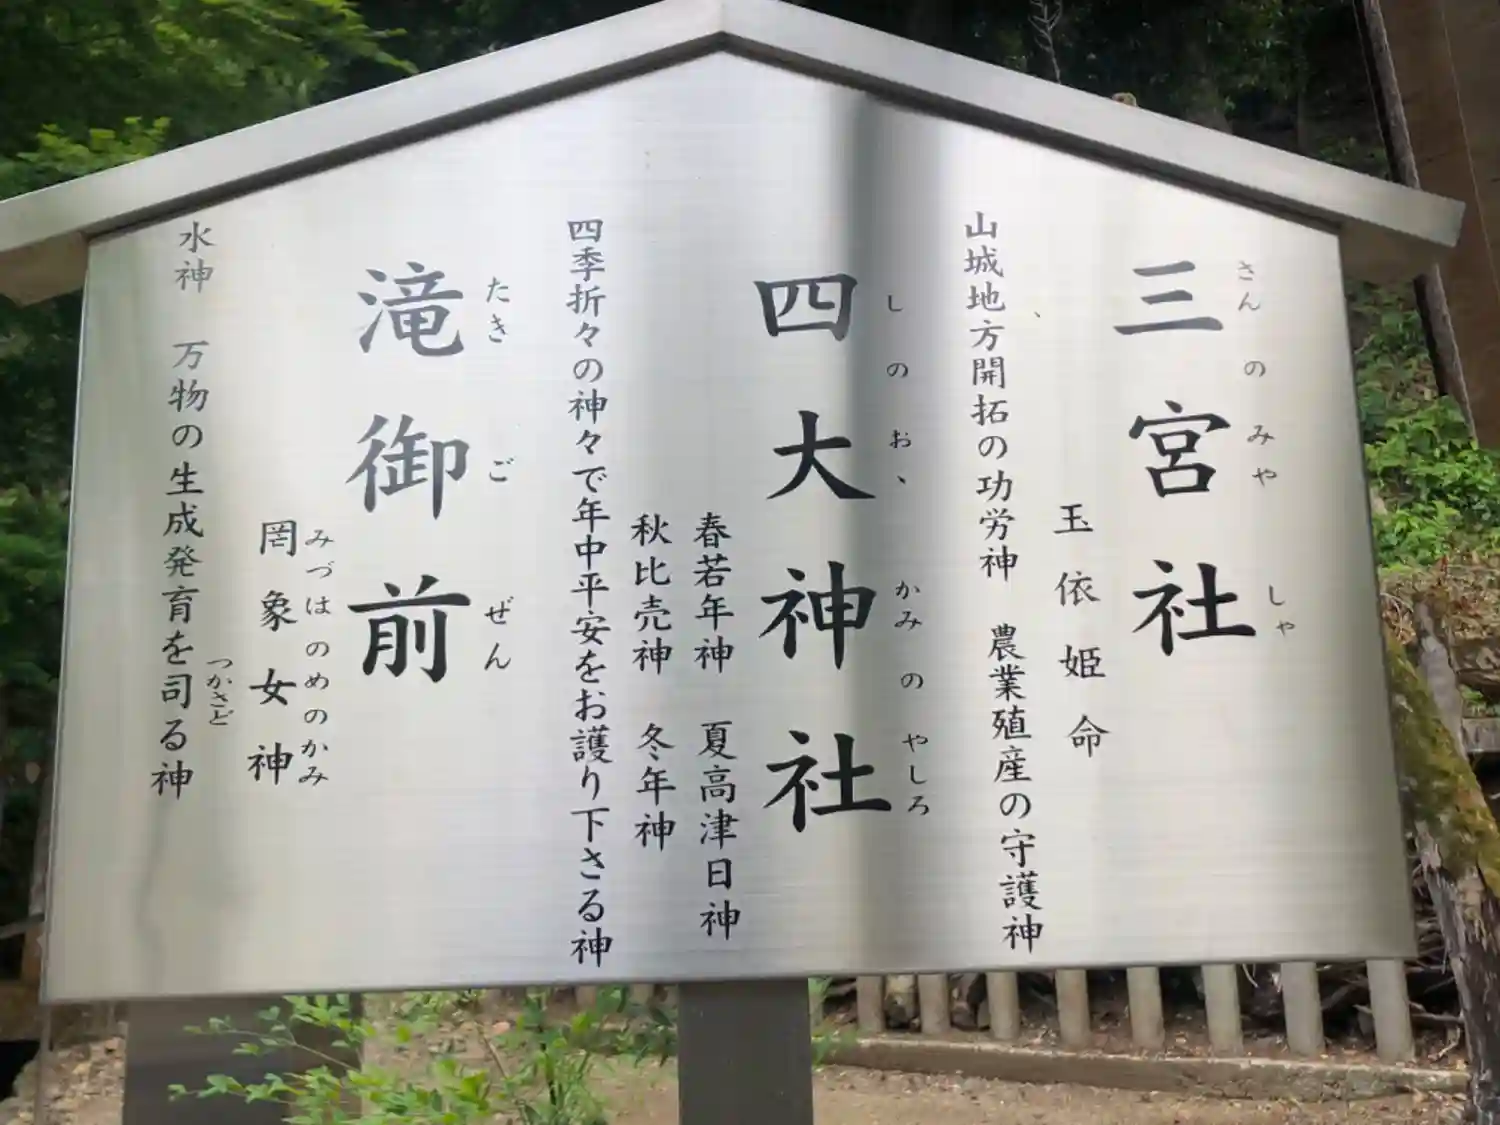 三宮社
さんのみやしゃ
玉依姫命
山城地方開拓の功労神 農業殖産の守護神
四大神社
しのおゝかみのやしろ
春若年神 夏高津日神
秋比売神 冬年神
四季折々の神々で年中平安をお護り下さる神
滝御前
たきごぜん
罔象女神
みづはのめのかみ
水神 万物の生成発育を司る神
つかさど